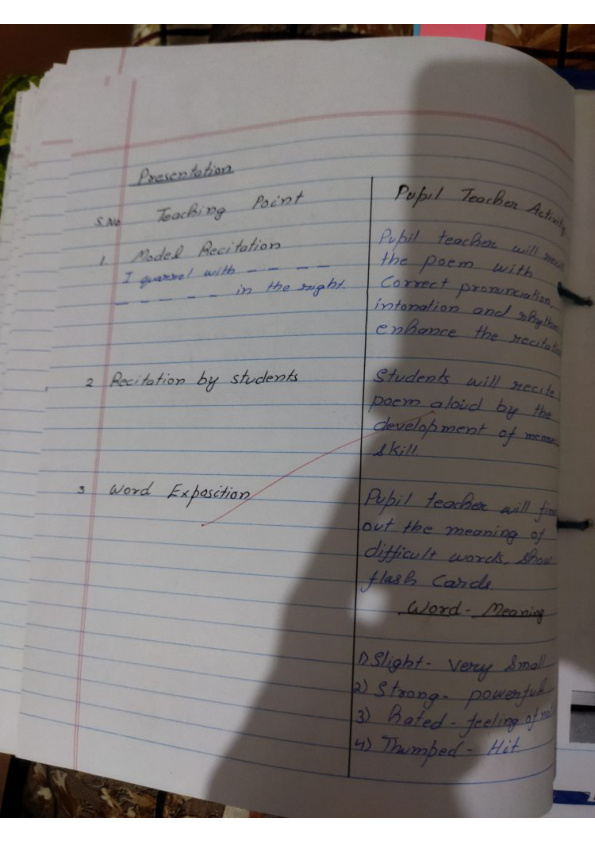 Presentation
S.No Teaching Point
Pupil Teacher Activity
1 Model Recitation
I quarrel with - - - -
- - - - - in the right.
Pupil teacher will
the poem with
Correct pronunciation,
intonation and
enhance the
2 Recitation by students
Students will recite
poem aloud by the
development of
skill
3 Word Exposition
Pupil teacher will
out the meaning of
difficult words, show
flash Cards.
Word - Meaning
1) Slight - very small
2) Strong - powerful
3) Hated - feeling of
4) Thumped - Hit